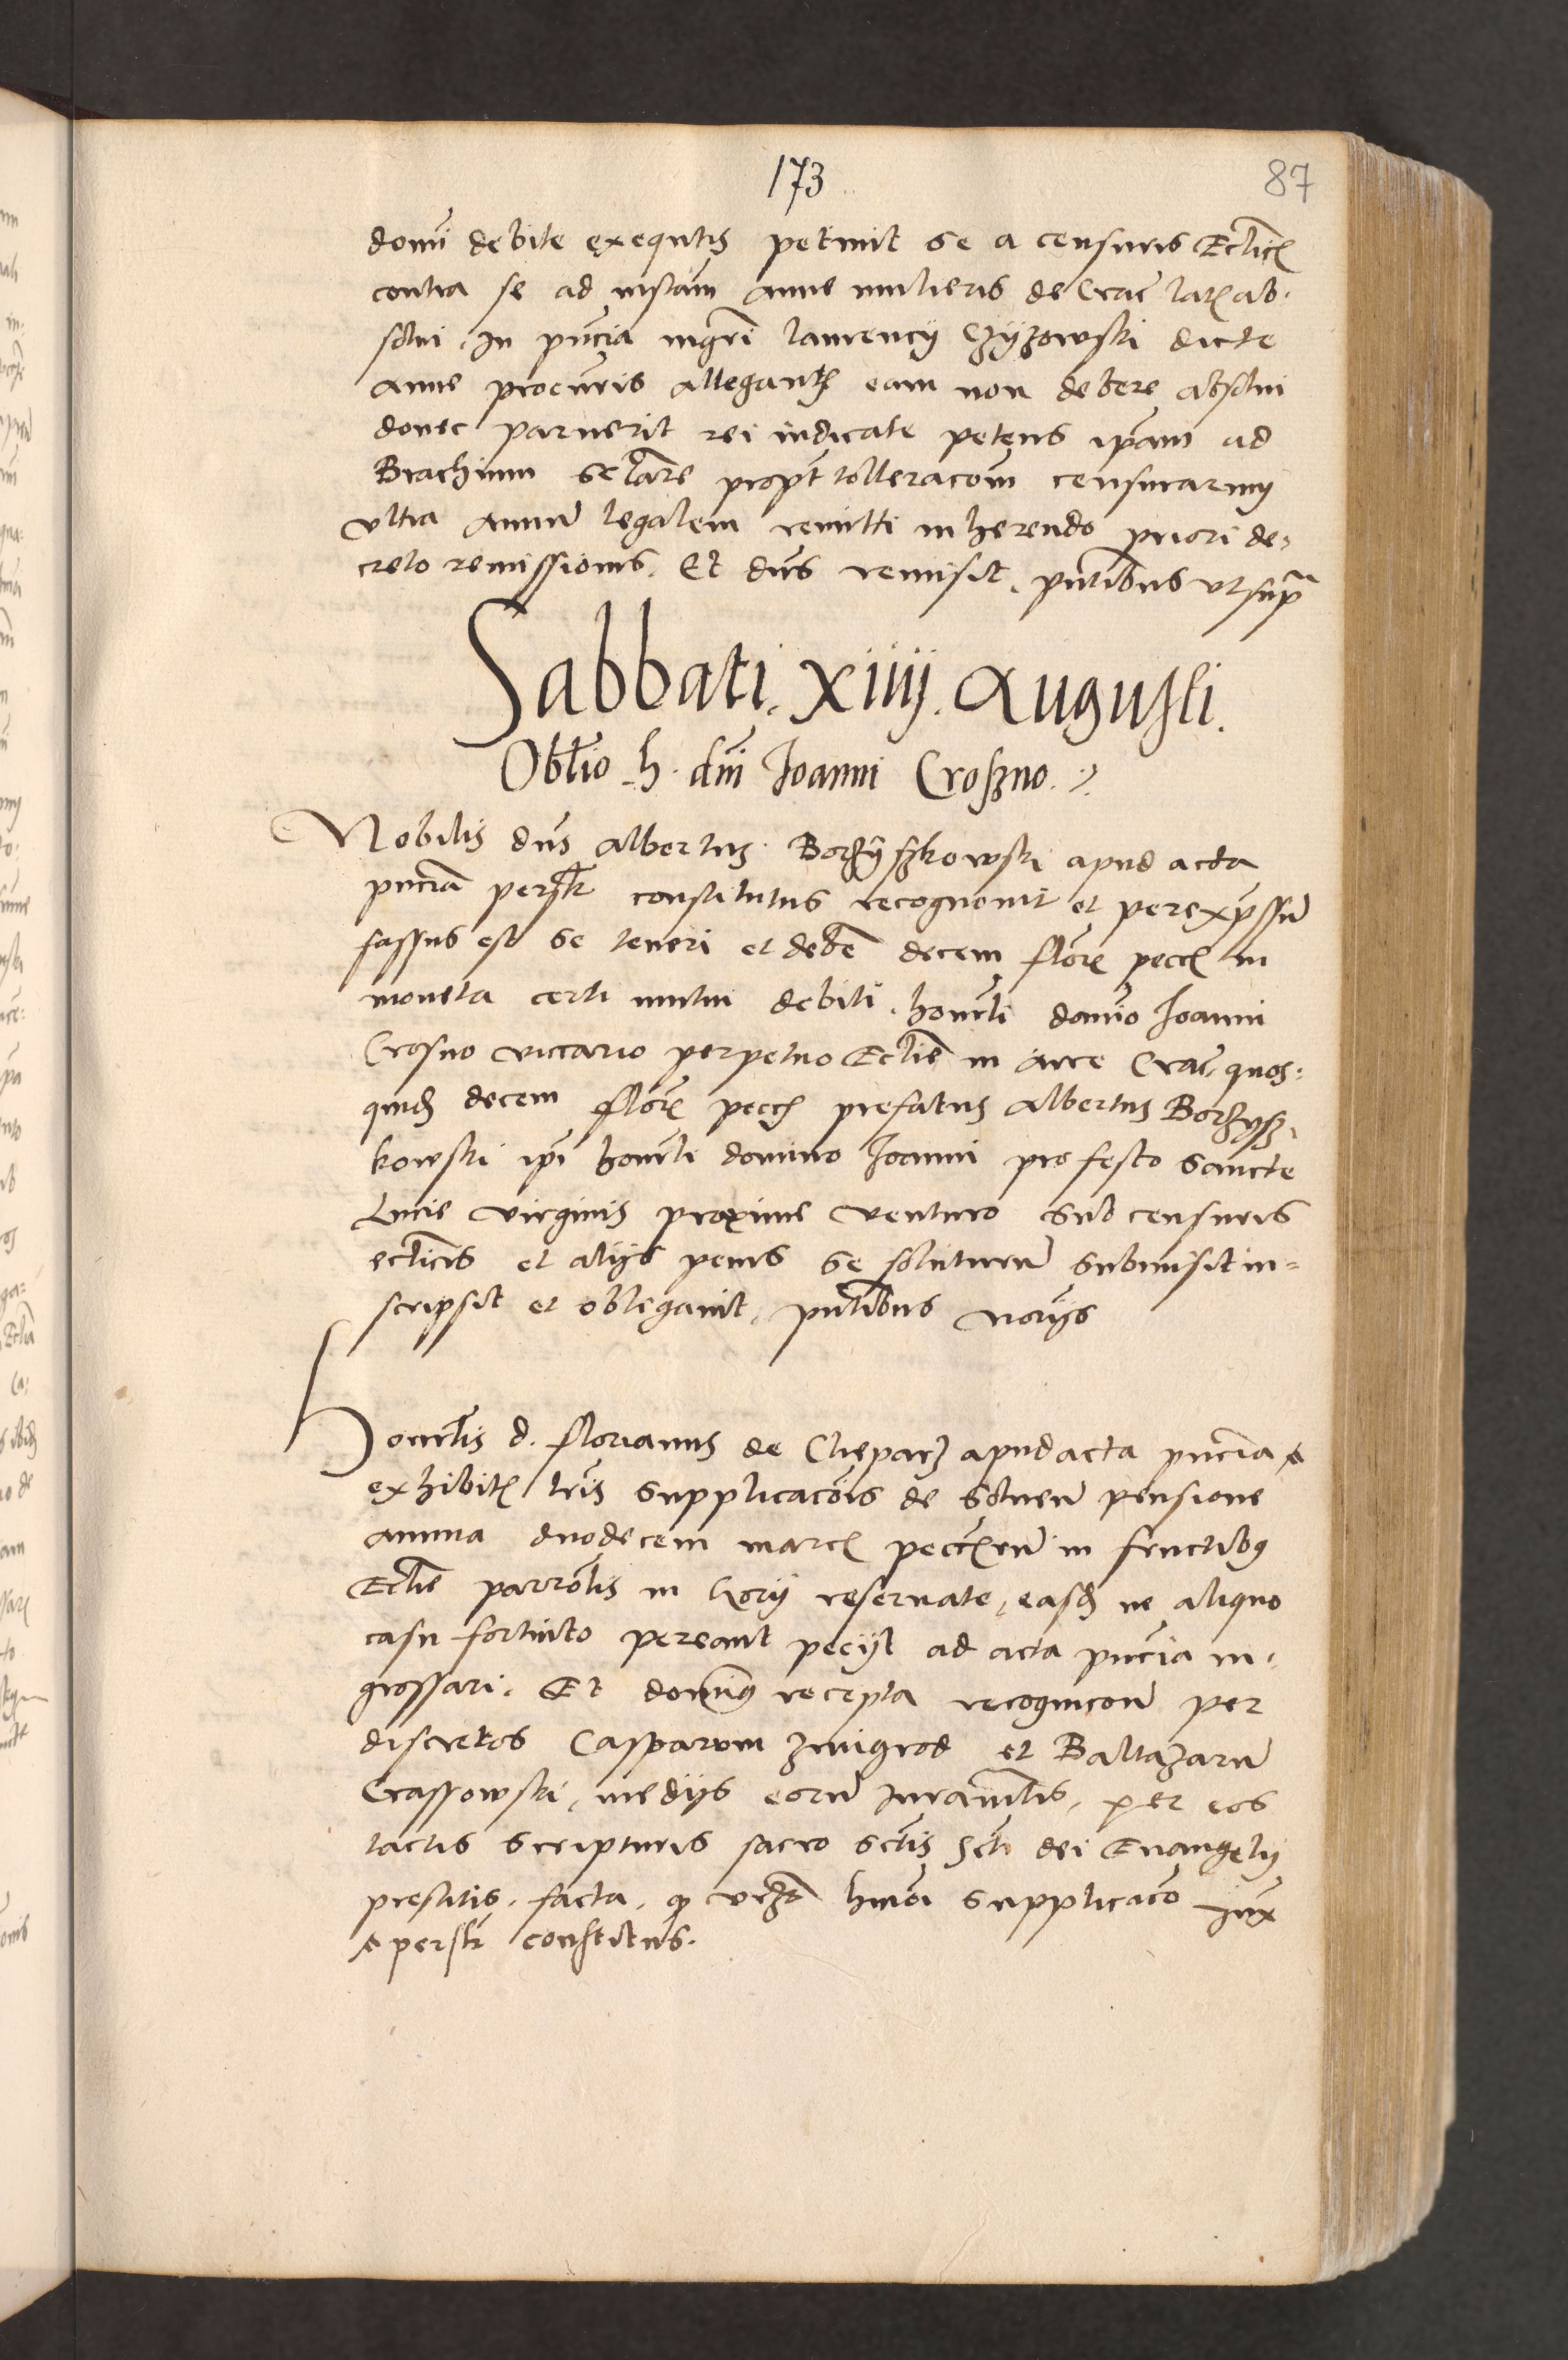 173
87
domi debite exequtis petiuit se a censuris Eclicis
contra se ad instam Anne mulieris de Crac latis ab-
solui. In pncia mgri Laurencij Czyżowski dicte
Anne procuris allegantis eam non debere absolui
donec paruerit rei iudicate petens ipam ad
Brachium seclare propt tolleracom censurarum
vltra Annu legalem remitti inherendo priori de-
creto remissionis. Et dns remisit. pntibus vt supra
Sabbati. xiiij. Augusti.
Obltio h. dni Joanni Croszno.
Nobilis dns Albertus Borzyszkowski apud acta
pncia perslr constitutus recognouit et per expssu
fassus est se teneri et debe decem flore pecce in
moneta certi mutui debiti. honrli domio Joanni
Crosno viccario perpetuo Ecclie in Arce Crac. quos-
quid decem flore pecce prefatus Albertus Borzysz-
kowski ipi honrli domino Joanni pro festo Sancte
Lucie virginis proxime venturo sub censuris
eclicis et alijs penis se soluturu submisit in-
scripsit et obligauit. pntibus norijs
Honrlis d. Florianus de Clieparz apud acta pncia
exhibitis lris supplicacois de soluen pensione
annua duodecem marcis peccer in fructibus
Eclie parrolis in Gory reseruate, easd ne aliquo
casu fortuito pereant pecijt ad acta pncia in-
grossari. Et dominus recepta recognicone per
discretos Casparum Zmigrod et Baltazaru
Crassowski, medijs eoru Juramtis, per eos
tactis scripturis sacro sctis Scti dei Euangelij
prestitis. facta. hmoi supplicaco
perslr constitutus.